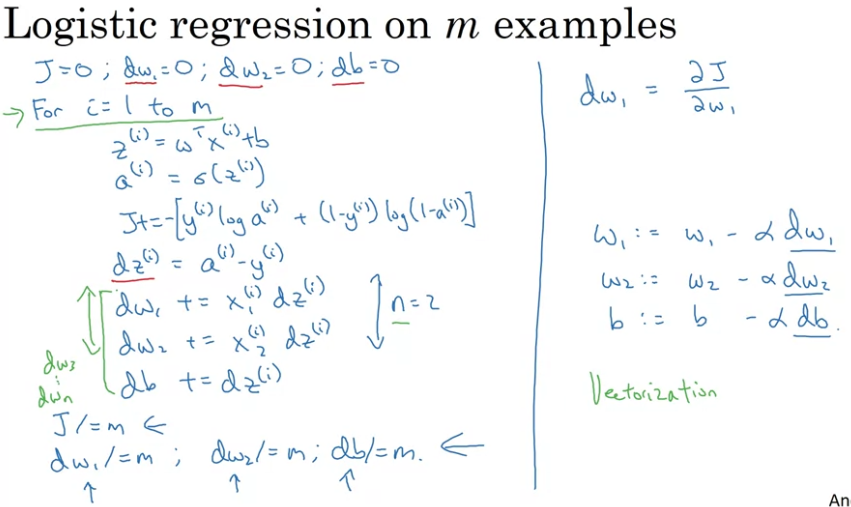 Logistic regression on m examples
J=0 ; dw₁=0 ; dw₂=0 ; db=0
→ For i = 1 to m
z⁽ⁱ⁾ = wᵀx⁽ⁱ⁾+b
a⁽ⁱ⁾ = σ(z⁽ⁱ⁾)
J+=-[y⁽ⁱ⁾ log a⁽ⁱ⁾ + (1-y⁽ⁱ⁾) log(1-a⁽ⁱ⁾)]
dz⁽ⁱ⁾ = a⁽ⁱ⁾-y⁽ⁱ⁾
dw₁ += x₁⁽ⁱ⁾ dz⁽ⁱ⁾
dw₂ += x₂⁽ⁱ⁾ dz⁽ⁱ⁾
db += dz⁽ⁱ⁾
n=2
dw₃
⋮
dwₙ
J/=m ←
dw₁/=m ; dw₂/=m ; db/=m. ←
dw₁ = ∂J/∂w₁
w₁ := w₁ - α dw₁
w₂ := w₂ - α dw₂
b := b - α db.
Vectorization
An